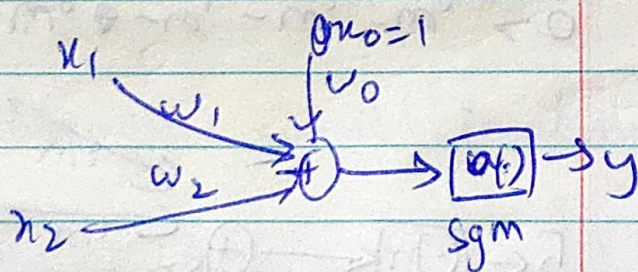 x₁
x₀=1
w₀
w₁
w₂
σ(.)
y
x₂
sgm